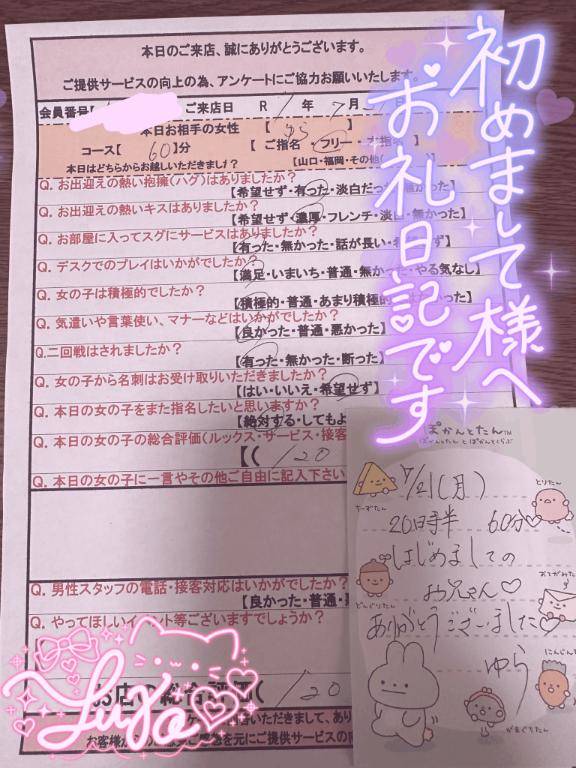 本日のご来店、誠にありがとうございます。
ご提供サービスの向上の為、アンケートにご協力お願いいたします。
会員番号【
ご来店日 R 7年 7月
日
本日お相手の女性 【 ゆら 】
コース【 60 】分 【 ご指名・フリー・本指名 】
本日はどちらからお越しいただきましたか? 【山口・福岡・その他(
Q. お出迎えの熱い抱擁(ハグ)はありましたか?
【希望せず・有った・淡白だった・無かった】
Q. お出迎えの熱いキスはありましたか?
【希望せず・濃厚・フレンチ・淡白・無かった】
Q. お部屋に入ってスグにサービスはありましたか?
【有った・無かった・話が長い・希望せず】
Q. デスクでのプレイはいかがでしたか?
【満足・いまいち・普通・無かった・やる気なし】
Q. 女の子は積極的でしたか?
【積極的・普通・あまり積極的
った】
Q. 気遣いや言葉使い、マナーなどはいかがでしたか?
【良かった・普通・悪かった】
Q.二回戦はされましたか?
【有った・無かった・断った】
Q. 女の子から名刺はお受け取りいただきましたか?
【はい・いいえ・希望せず】
Q. 本日の女の子をまた指名したいと思いますか?
【絶対する・してもよ
Q. 本日の女の子の総合評価(ルックス・サービス・接客
【( /20
Q. 本日の女の子に一言やその他ご自由に記入下さい
Q. 男性スタッフの電話・接客対応はいかがでしたか?
【良かった・普通・悪
Q. やってほしいイベント等ございますでしょうか?
お店の総合評価( /20
いただきまして、あり
お客様からの
を元にご提供サービスの向
初めまして様へ
お礼日記です
ぽかんとたん™
ぽかんとたん と ぽかんとくらぶ
7/21(月)
20時半 60分♡
はじめましての
お兄さん♡
ありがとうございました♡
ゆら
ちーずたん
とりたん
どんぐりたん
おてがみたん
にんじんたん
がまぐちたん
Yura